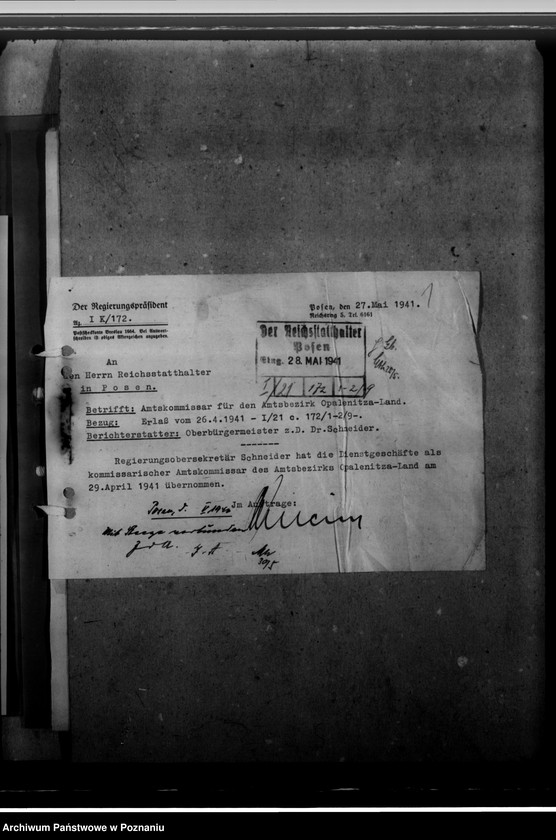 Der Regierungspräsident
Az. I K/172.
Posen, den 27.Mai 1941.
Der Reichsstatthalter
Posen
Eing. 28. MAI 1941
I/21 172 1-2/9
An
den Herrn Reichsstatthalter
in Posen.
Betrifft: Amtskommissar für den Amtsbezirk Opalenitza-Land.
Bezug: Erlaß vom 26.4.1941 - I/21 c. 172/1-2/9-.
Berichterstatter: Oberbürgermeister z.D. Dr.Schneider.
Regierungsobersekretär Schneider hat die Dienstgeschäfte als
kommissarischer Amtskommissar des Amtsbezirks Opalenitza-Land am
29.April 1941 übernommen.
Jm Auftrage:
Posen, d.
z. d. A.
Archiwum Państwowe w Poznaniu